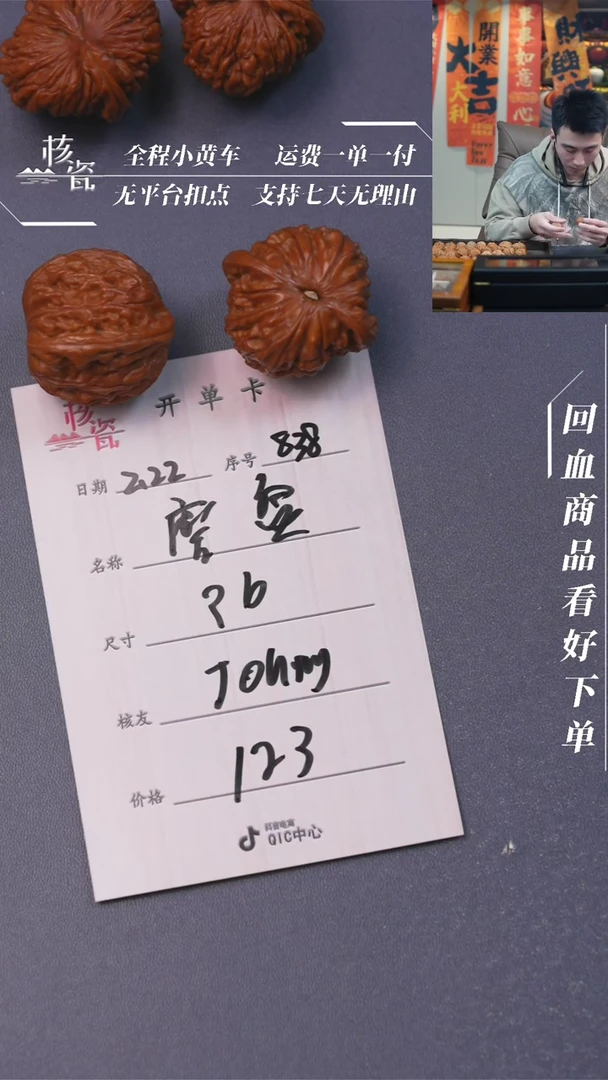 核瓷
全程小黄车 运费一单一付
无平台扣点 支持七天无理由
開業
大吉
大利
事事如意
心
財興
回血商品看好下单
核瓷
开单卡
日期 2.22 序号 838
名称
尺寸
核友 Johny
价格 123
抖音电商
QIC中心